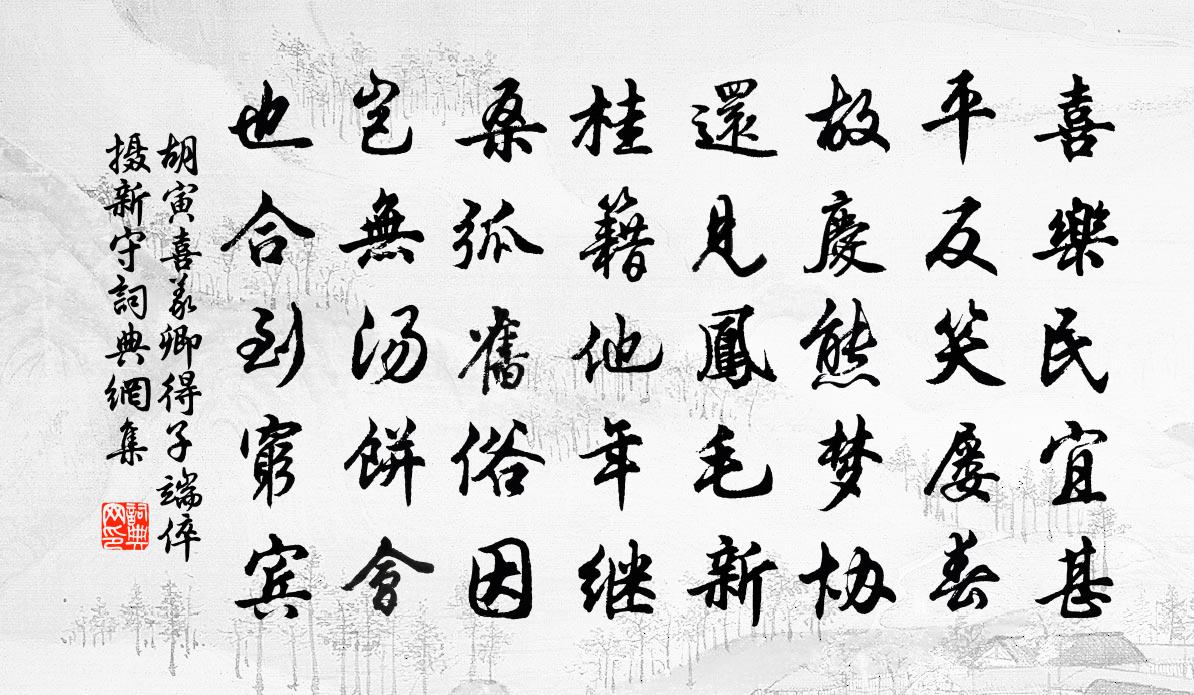 喜樂民宜甚
平反笑屡春
故慶熊梦协
還見鳳毛新
桂籍他年继
桑弧舊俗因
岂無湯餅會
也合到窮宾
胡寅喜義卿得子端倅
摄新守詞典網集
詞典网印